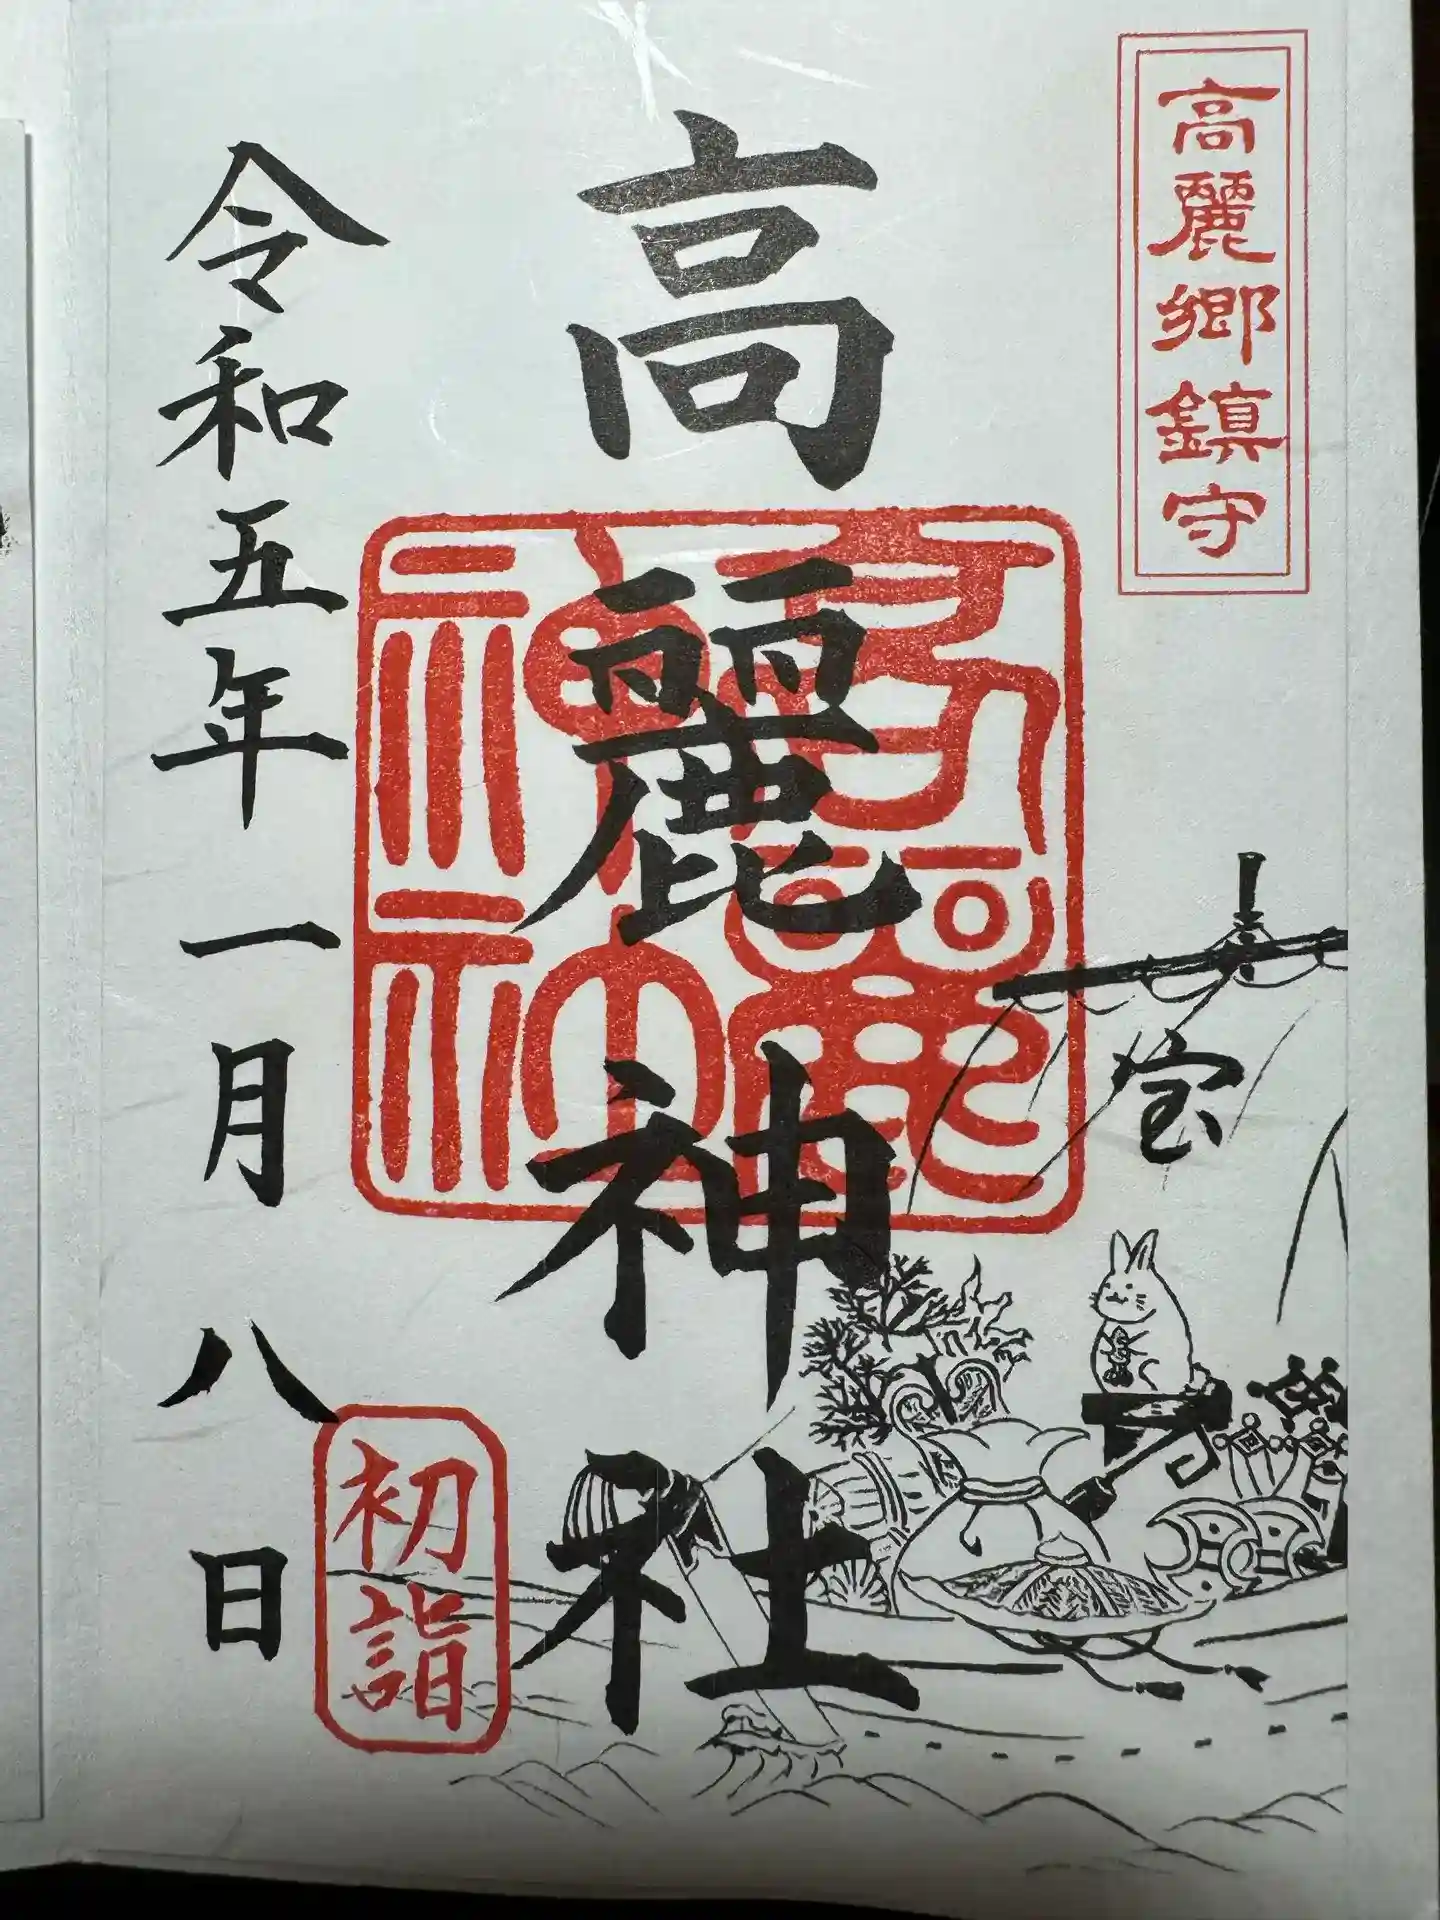 高麗郷鎮守
宝
高麗神社
高麗神社
初詣
令和五年一月八日